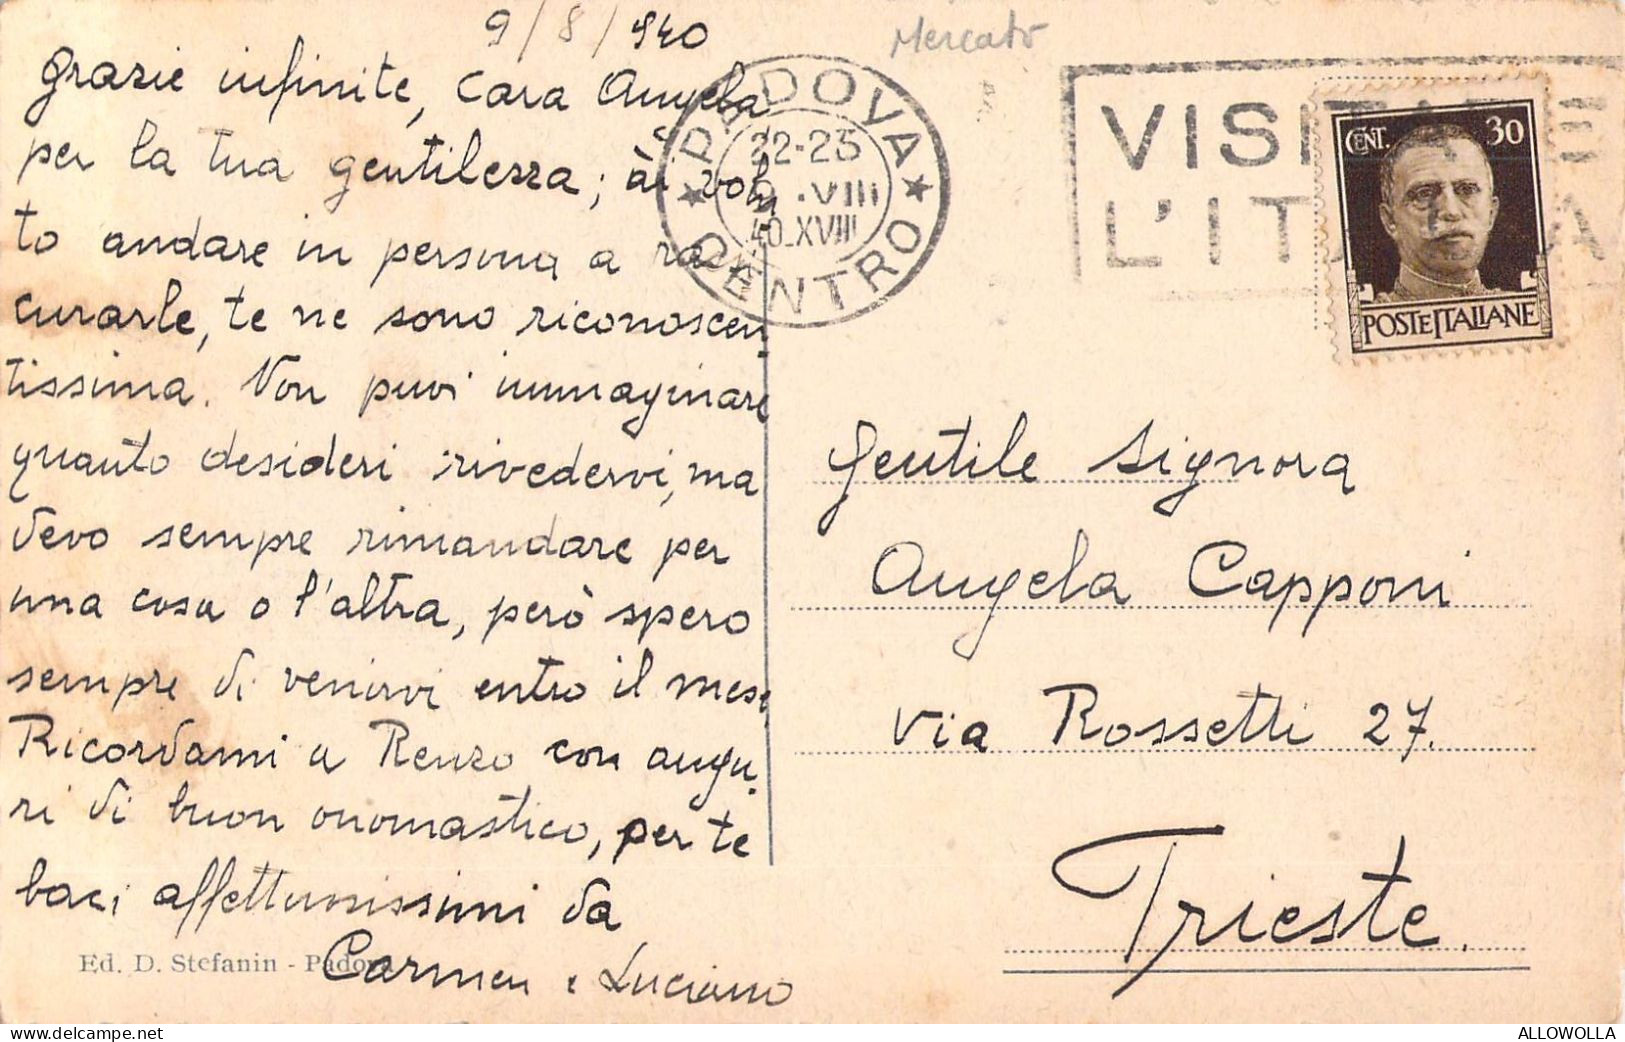 9/8/940
Mercato
Grazie infinite, Cara Angela
per la tua gentilezza; ài volu
to andare in persona a rac-
curarle, te ne sono riconoscen
tissima. Non puoi immaginare
quanto desideri rivedervi, ma
devo sempre rimandare per
una cosa o l'altra, però spero
sempre di venirvi entro il mese.
Ricordami a Renzo con augu
ri di buon onomastico, per te
baci affettuosissimi da
Carmen e Luciano
Ed. D. Stefanin - Padova
PADOVA CENTRO
22-23
9.VIII
40.XVIII
VISITATE
L'ITALIA
CENT. 30
POSTE ITALIANE
Gentile Signora
Angela Capponi
Via Rossetti 27.
Trieste.
www.delcampe.net
ALLOWOLLA